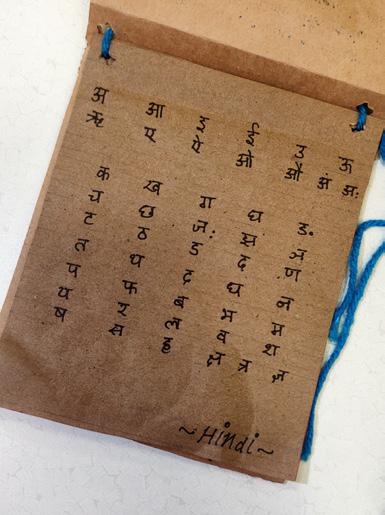 अ आ इ ई उ ऊ
ऋ ए ऐ ओ औ अं अः
क ख ग घ ङ
च छ ज: झ ञ
ट ठ ड द ण
त थ द घ न
प फ ब भ म
य र ल व श
ष स ह क्ष त्र ज्ञ
~Hindi~